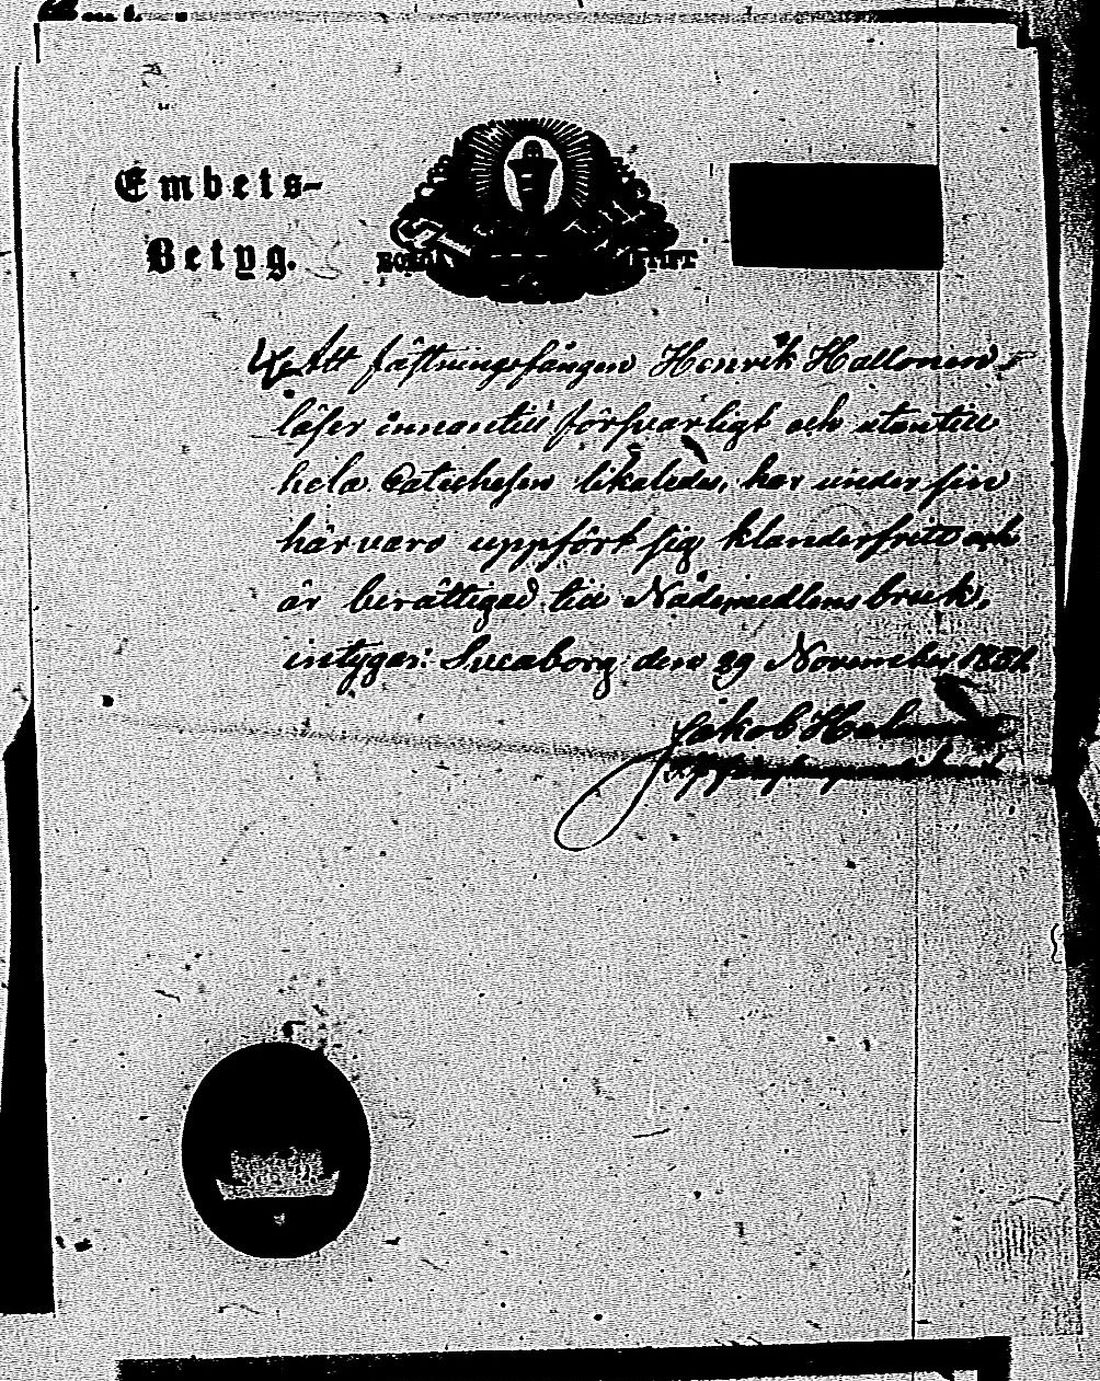 Embets-
Betyg.
BORGÅ STIFT
Att fästningsfången Henrik Hallonen
läser innantill försvarligt och utantill
hela Catechesen likaledes, har under sin
härvaro uppfört sig klanderfritt och
är berättigad till Nådemedlens bruk,
intygar: Sveaborg den 29 November
Jakob